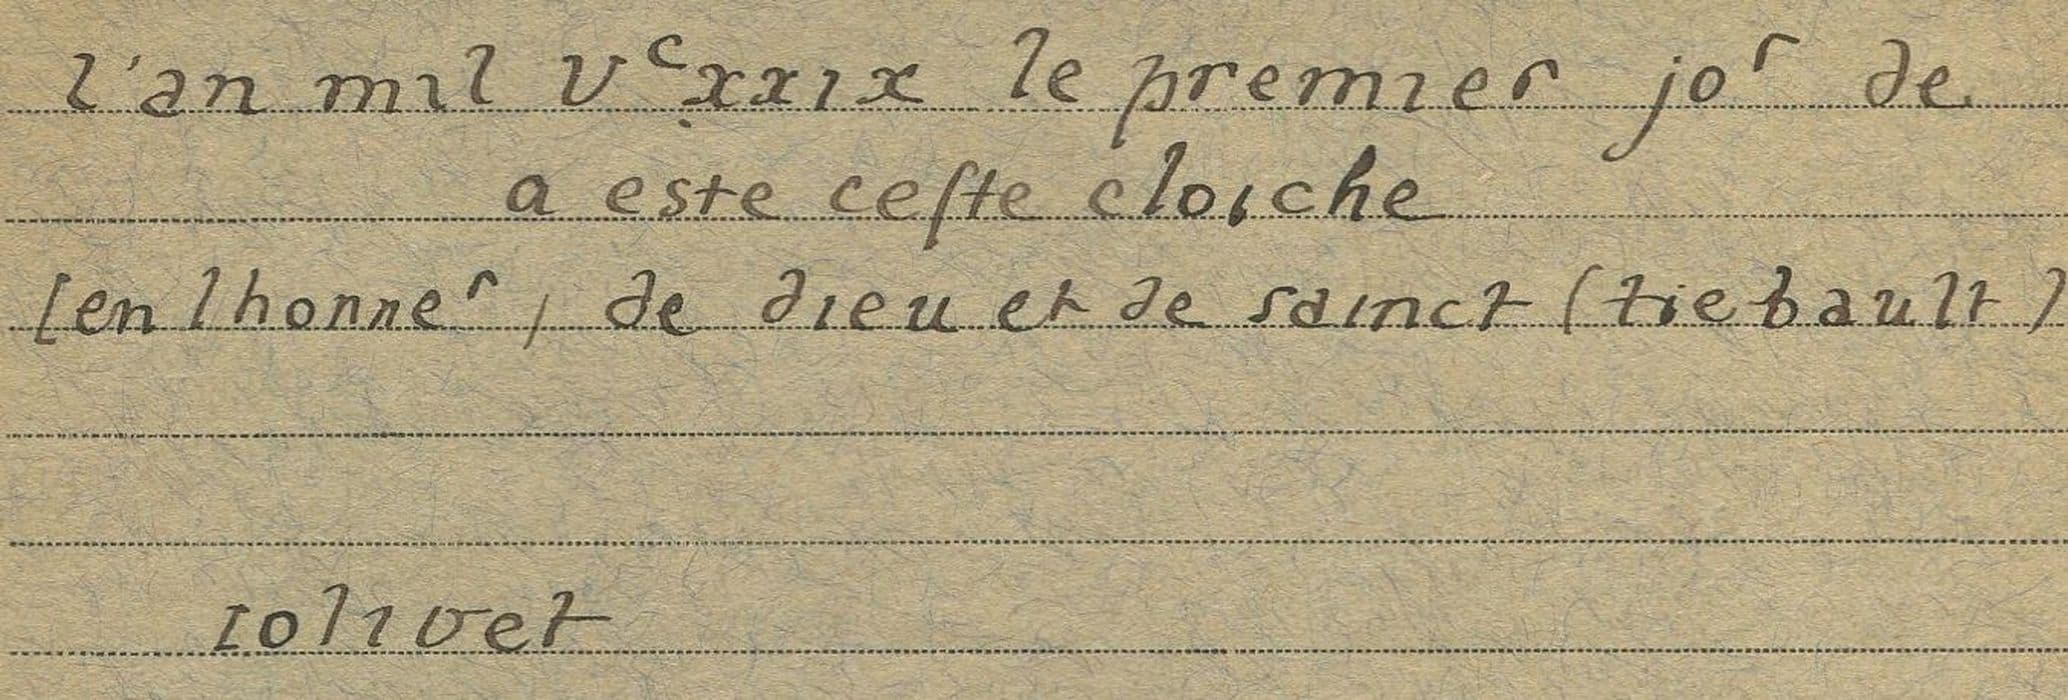 l'an mil vᶜxxix le premier joʳ de
a este ceſte cloiche
[en lhonneʳ, de dieu et de sainct (tiebault)
iolivet